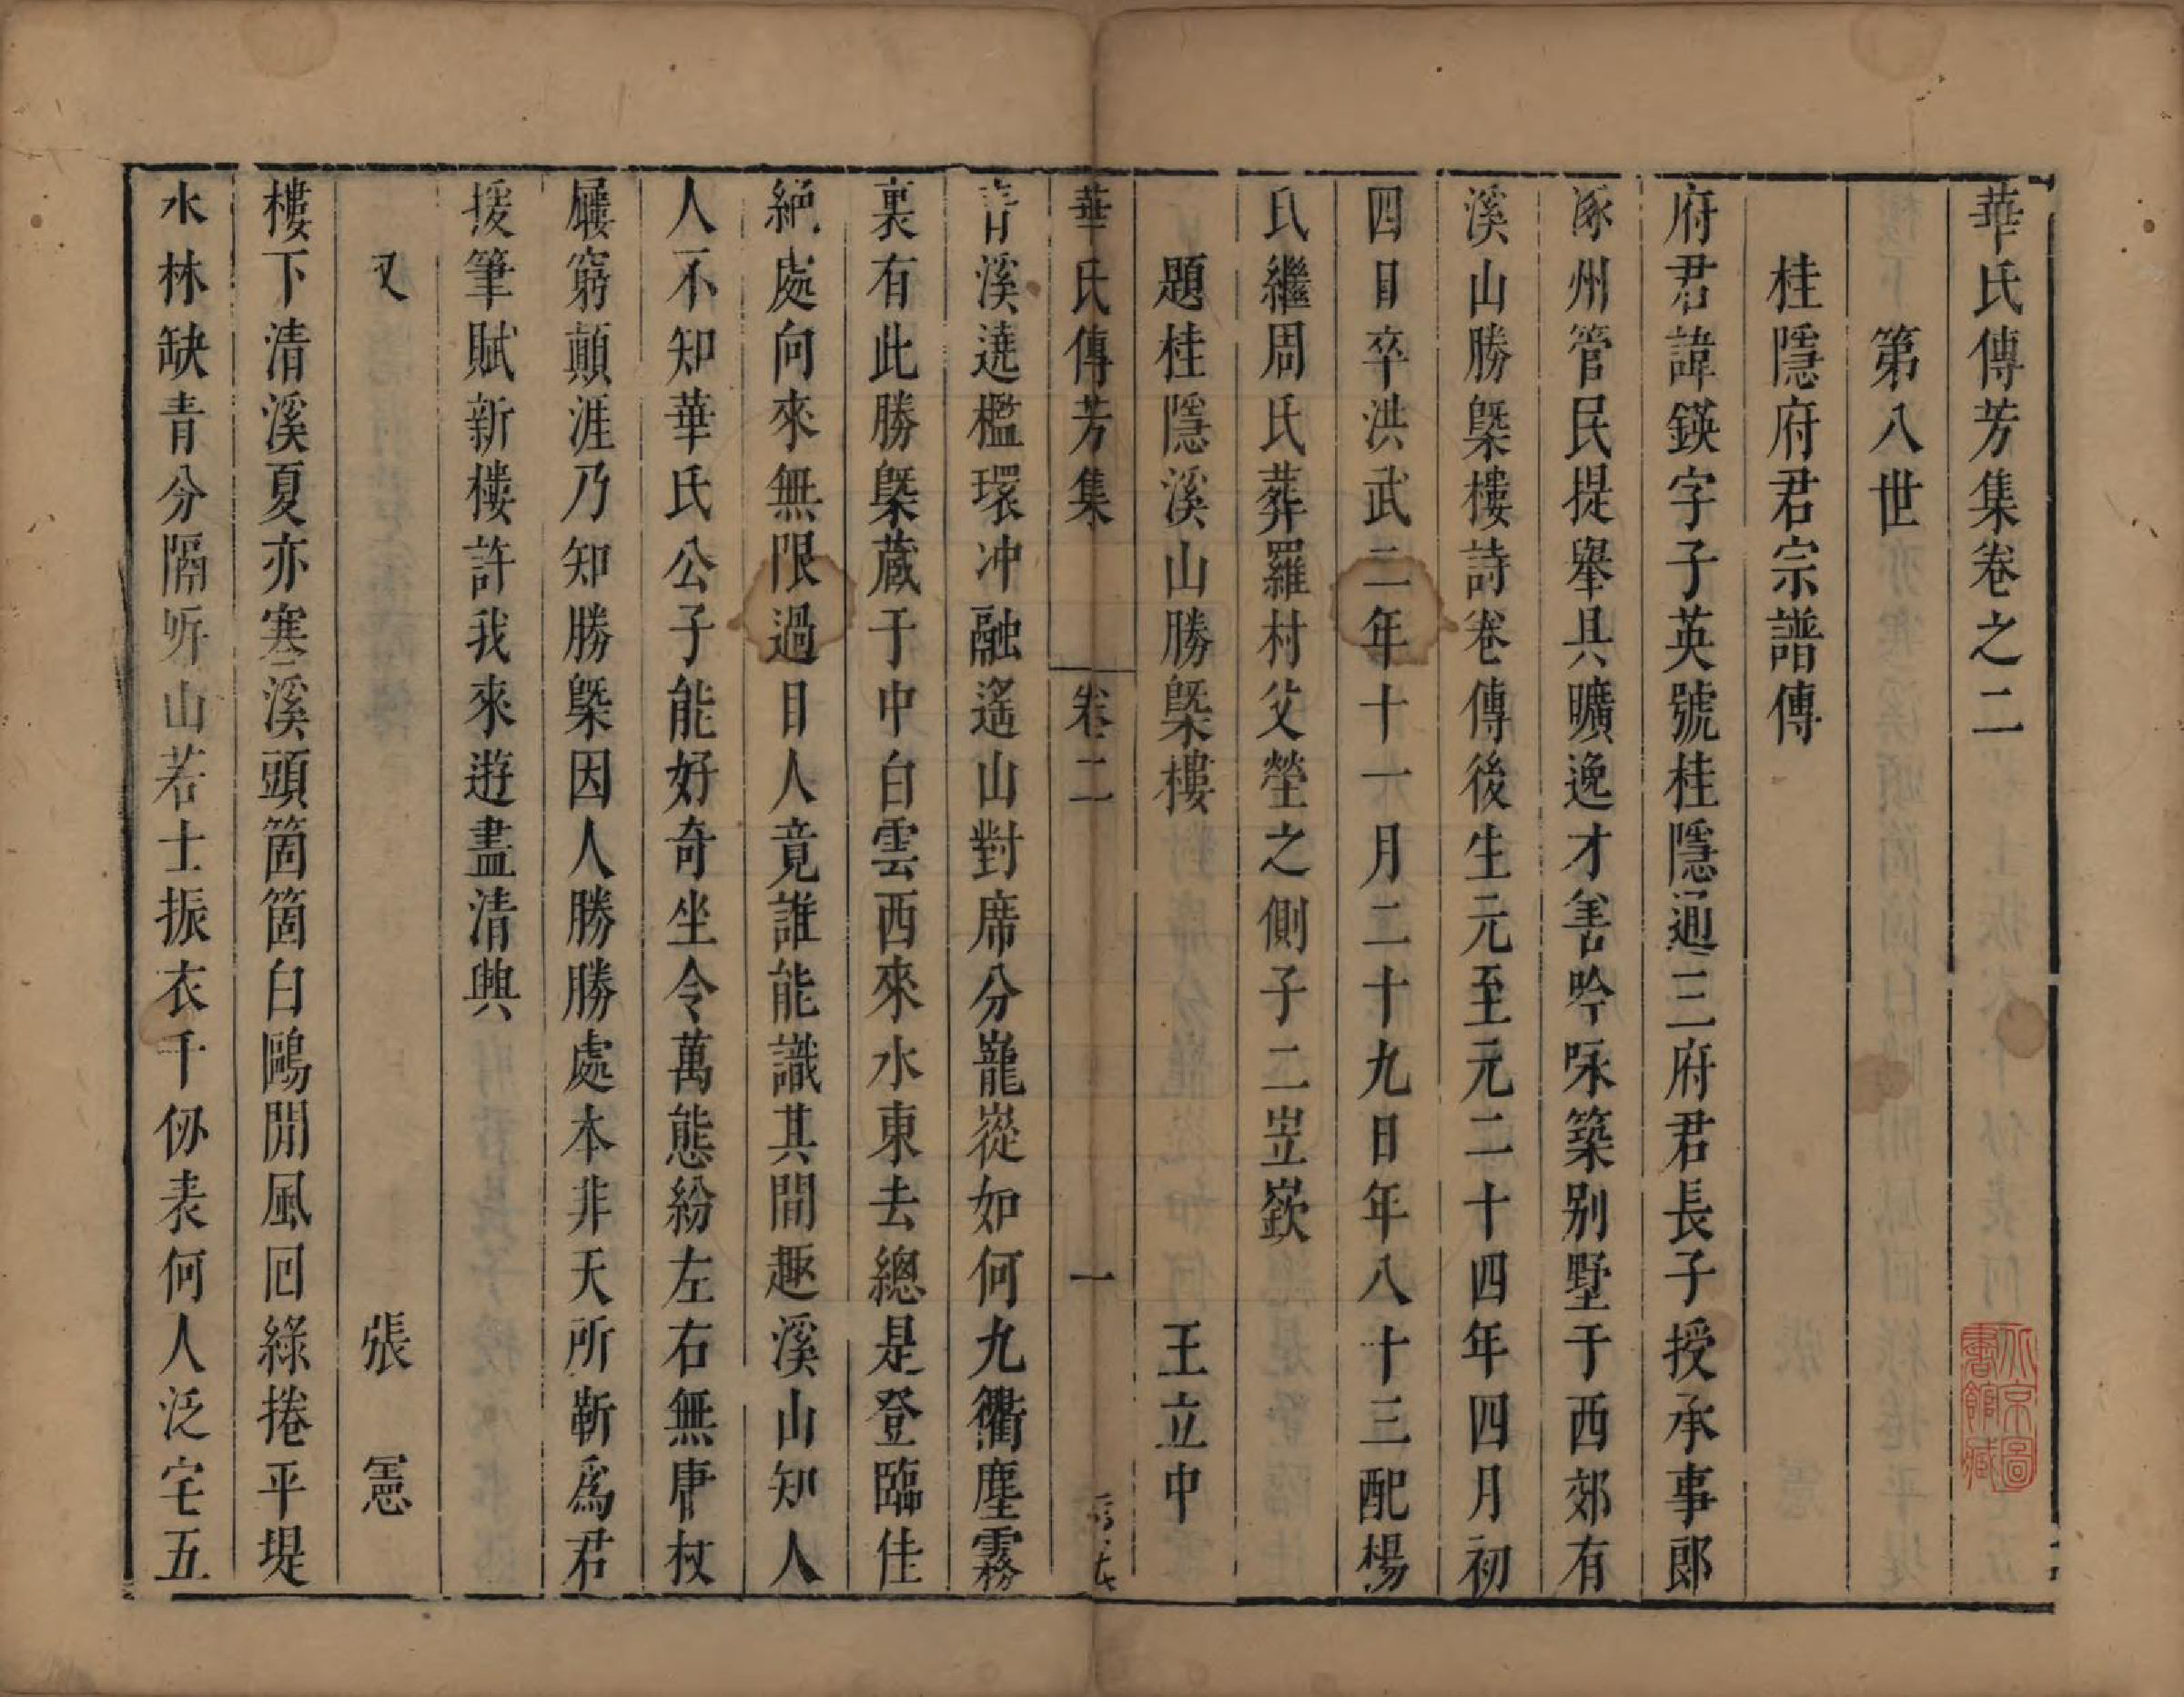 華氏傳芳集卷之二
第八世
桂隱府君宗譜傳
府君諱鍈字子英號桂隱通三府君長子授承事郎
涿州管民提舉具曠逸才善吟咏築别墅于西郊有
溪山勝槩樓詩卷傳後生元至元二十四年四月初
四日卒洪武二年十一月二十九日年八十三配楊
氏繼周氏葬羅村父塋之側子二岦嶔
題桂隱溪山勝槩樓 王立中
華氏傳芳集 卷二 一
青溪遶檻環冲融遙山對席分巃嵸如何九衢塵霧
裏有此勝槩蔵于中白雲西來水東去總是登臨佳
絶處向來無限過目人竟誰能識其間趣溪山知人
人不知華氏公子能好奇坐令萬態紛左右無庸杖
屨窮顚涯乃知勝槩因人勝勝處本非天所靳爲君
援筆賦新樓許我來遊盡清興
又 張憲
樓下清溪夏亦寒溪頭箇箇白鷗閒風回綠捲平堤
水林缺青分隔岸山若士振衣千仭表何人泛宅五
京圖書館藏